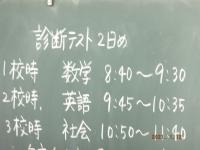 診断テスト2日め
1校時 数学 8:40～9:30
2校時. 英語 9:45～10:35
3校時 社会 10:50～11:40